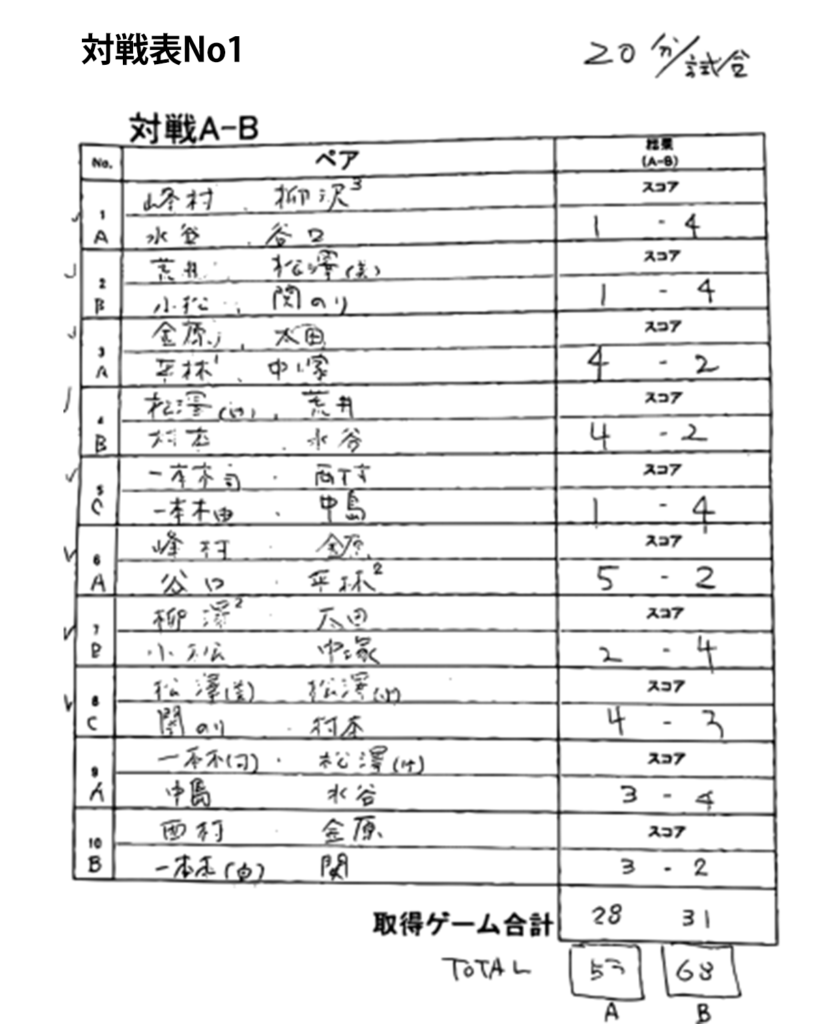 対戦表No1
20分/試合
対戦A-B
No. ペア 結果(A-B)
1 峰村 . 柳沢3 スコア
A 水登 . 谷口 1 - 4
2 荒井 . 松澤(美) スコア
B 小松 . 関のり 1 - 4
3 金原 . 太田 スコア
A 平林1 . 中塚 4 - 2
4 松澤 . 荒井 スコア
B 村本 . 水谷 4 - 2
5 一本木司 . 西村 スコア
C 一本木由 . 中島 1 - 4
6 峰村 . 金原 スコア
A 谷口 . 平林2 5 - 2
7 柳澤2 . 太田 スコア
B 小松 . 中塚 2 - 4
8 松澤(美) 松澤 スコア
C 関のり 村本 4 - 3
9 一本木(司) . 松澤 スコア
A 中島 水谷 3 - 4
10 西村 . 金原 スコア
B 一本木(由) 関 3 - 2
取得ゲーム合計 28 31
TOTAL 57 68
A B